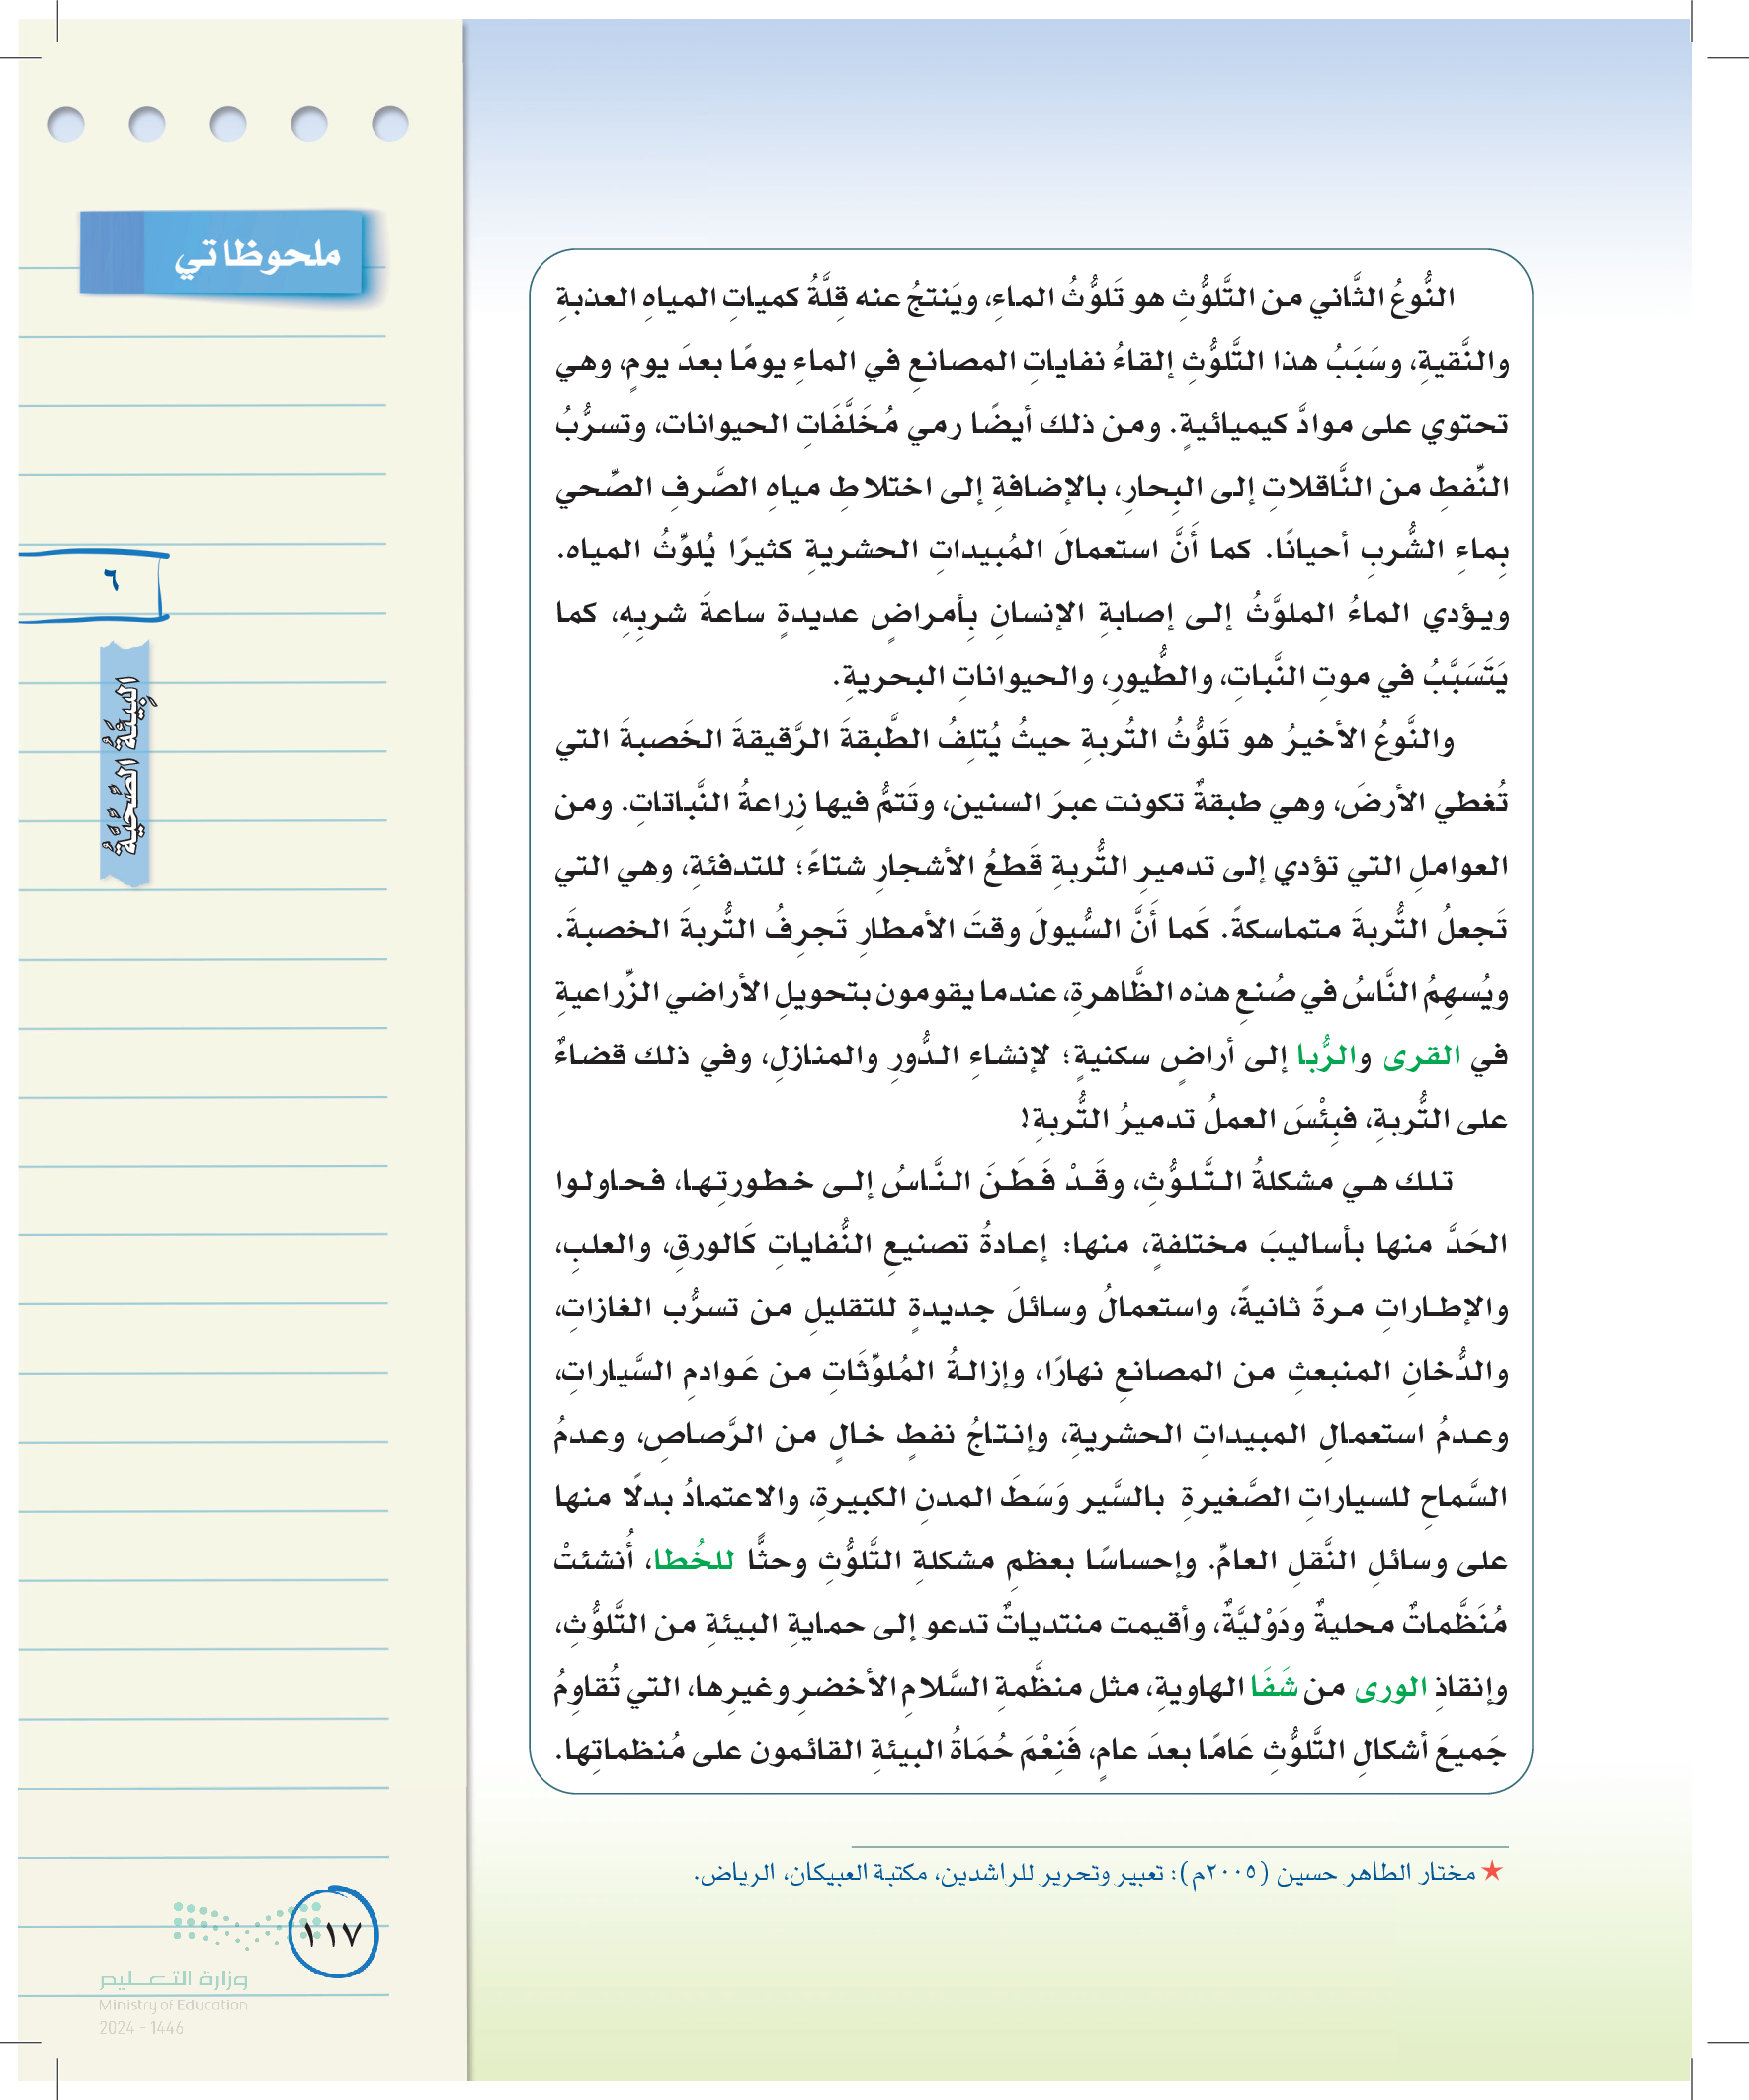 ملحوظاتي
٦
البِيئَةُ الصِّحِّيَّةُ
النُّوعُ الثَّاني من التَّلوُّثِ هو تَلوُّثُ الماءِ، ويَنتجُ عنه قِلَّةُ كمياتِ المياهِ العذبةِ
والنَّقيةِ، وسَبَبُ هذا التَّلوُّثِ إلقاءُ نفاياتِ المصانعِ في الماءِ يومًا بعدَ يومٍ، وهي
تحتوي على موادَّ كيميائيةٍ. ومن ذلك أيضًا رمي مُخَلَّفَاتِ الحيوانات، وتسرُّبُ
النِّفطِ من النَّاقلاتِ إلى البِحارِ، بالإضافةِ إلى اختلاطِ مياهِ الصَّرفِ الصِّحي
بِماءِ الشُّربِ أحيانًا. كما أَنَّ استعمالَ المُبيداتِ الحشريةِ كثيرًا يُلوِّثُ المياه.
ويؤدي الماءُ الملوَّثُ إلى إصابةِ الإنسانِ بِأمراضٍ عديدةٍ ساعةَ شربِهِ، كما
يَتَسَبَّبُ في موتِ النَّباتِ، والطُّيورِ، والحيواناتِ البحريةِ.
والنَّوعُ الأخيرُ هو تَلوُّثُ التُربةِ حيثُ يُتلِفُ الطَّبقةَ الرَّقيقةَ الخَصبةَ التي
تُغطي الأرضَ، وهي طبقةٌ تكونت عبرَ السنين، وتَتمُّ فيها زِراعةُ النَّباتاتِ. ومن
العواملِ التي تؤدي إلى تدميرِ التُّربةِ قَطعُ الأشجارِ شتاءً؛ للتدفئةِ، وهي التي
تَجعلُ التُّربةَ متماسكةً. كَما أَنَّ السُّيولَ وقتَ الأمطارِ تَجرِفُ التُّربةَ الخصبةَ.
ويُسهِمُ النَّاسُ في صُنعِ هذه الظَّاهرةِ، عندما يقومون بتحويلِ الأراضي الزِّراعيةِ
في القرى والرُّبا إلى أراضٍ سكنيةٍ؛ لإنشاءِ الدُّورِ والمنازلِ، وفي ذلك قضاءٌ
على التُّربةِ، فبِئْسَ العملُ تدميرُ التُّربةِ!
تلك هي مشكلةُ التَّلوُّثِ، وقَدْ فَطَنَ النَّاسُ إلى خطورتِها، فحاولوا
الحَدَّ منها بأساليبَ مختلفةٍ، منها: إعادةُ تصنيعِ النُّفاياتِ كَالورقِ، والعلبِ،
والإطاراتِ مرةً ثانيةً، واستعمالُ وسائلَ جديدةٍ للتقليلِ من تسرُّب الغازاتِ،
والدُّخانِ المنبعثِ من المصانعِ نهارًا، وإزالةُ المُلوِّثَاتِ من عَوادمِ السَّياراتِ،
وعدمُ استعمالِ المبيداتِ الحشريةِ، وإنتاجُ نفطٍ خالٍ من الرَّصاصِ، وعدمُ
السَّماحِ للسياراتِ الصَّغيرةِ بالسَّير وَسَطَ المدنِ الكبيرةِ، والاعتمادُ بدلًا منها
على وسائلِ النَّقلِ العامِّ. وإحساسًا بعظمِ مشكلةِ التَّلوُّثِ وحثًّا للخُطا، أُنشئتْ
مُنَظَّماتٌ محليةٌ ودَوْليَّةٌ، وأقيمت منتدياتٌ تدعو إلى حمايةِ البيئةِ من التَّلوُّثِ،
وإنقاذِ الورى من شَفَا الهاويةِ، مثل منظَّمةِ السَّلامِ الأخضرِ وغيرِها، التي تُقاوِمُ
جَميعَ أشكالِ التَّلوُّثِ عَامًا بعدَ عامٍ، فَنِعْمَ حُمَاةُ البيئةِ القائمون على مُنظماتِها.
★ مختار الطاهر حسين (٢٠٠٥م): تعبير وتحرير للراشدين، مكتبة العبيكان، الرياض.
١١٧
وزارة التعليم
Ministry of Education
2024 - 1446